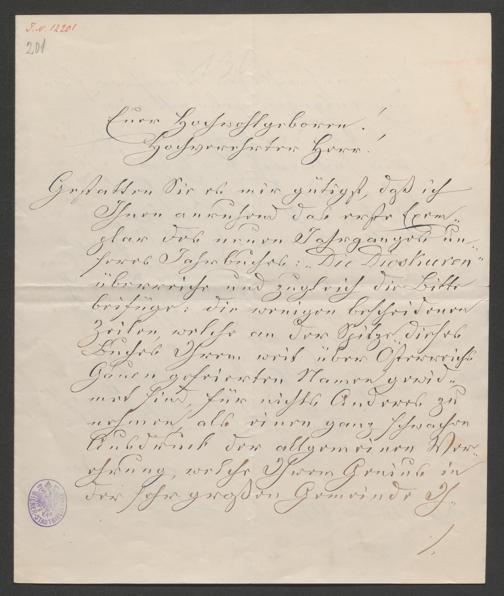 I.N. 12201
201
Euer Hochwohlgeboren!
Hochverehrter Herr!
Gestatten Sie es mir gütigst, daß ich
Ihnen anruhend das erste Exem-
plar des neuen Jahrganges un-
seres Jahrbuches: „Die Dioskuren"
überreiche und zugleich die Bitte
beifüge: die wenigen bescheidenen
Zeilen, welche an der Spitze dieses
Buches Ihrem weit über Österreichs
Gauen gefeierten Namen gewid-
met sind, für nichts Anderes zu
nehmen, als einen ganz schwachen
Ausdruck der allgemeinen Ver-
ehrung, welche Ihrem Genius in
der sehr großen Gemeinde Ih-
./.